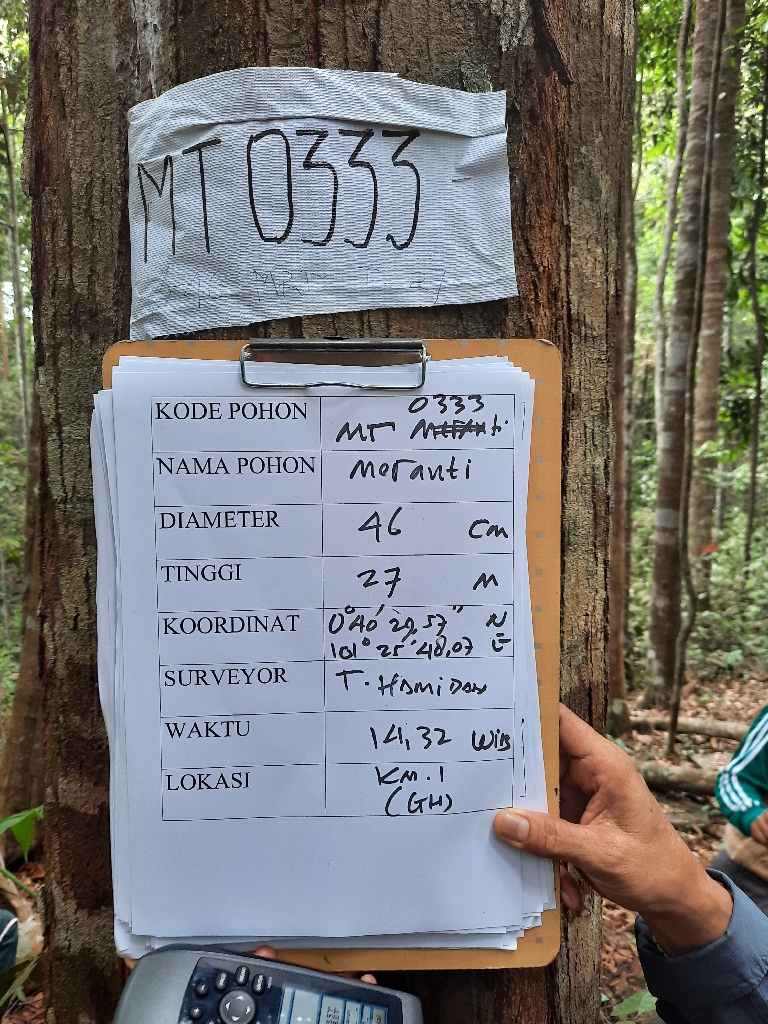 MT 0333
KODE POHON
0333
MT
NAMA POHON Meranti
DIAMETER 46 Cm
TINGGI 27 M
KOORDINAT 0°40'29,57" N
101°25'48,07 E
SURVEYOR T. HAMIDAN
WAKTU 14,32 WIB
LOKASI KM.1
(GH)